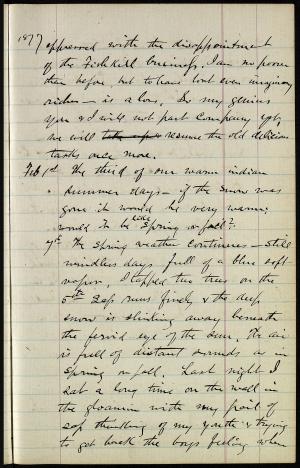 1877
oppressed with the disappointment
of the Fishkill business. I am no poorer
than before, but to have lost even imaginary
riches — is a loss. So my genius
You & I will not part Company yet,
we will take up & resume the old delicious
tasks once more.
Feb 1st The third of our warm indian
summer days — if the snow was
gone it would be very warm;
would it be like Spring or fall?
7th The Spring weather Continues — Still
windless days full of a blue soft
vapor. I tapped two trees on the
5th Sap runs finely & the deep
snow is slinking away beneath
the fervid eye of the Sun. The air
is full of distant sounds as in
Spring or fall. Last night I
Sat a long time on the wall in
the gloaming with my pail of
sap thinking of my youth & trying
to get back the boys feeling when